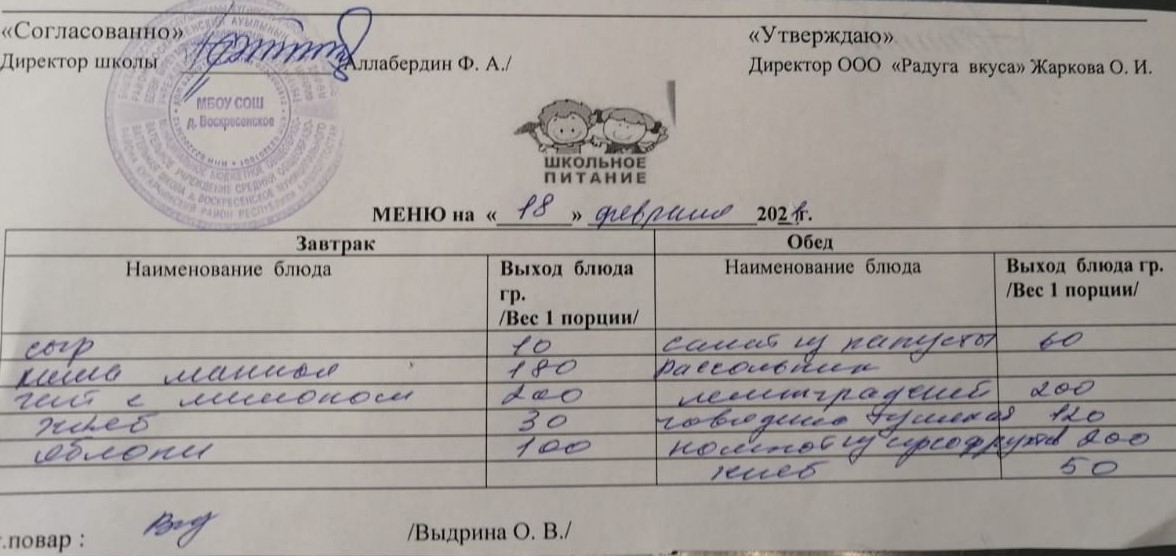 «Согласованно» «Утверждаю»
Директор школы /Аллабердин Ф. А./ Директор ООО «Радуга вкуса» Жаркова О. И.
МБОУ СОШ
д. Воскресенское
ШКОЛЬНОЕ
ПИТАНИЕ
МЕНЮ на «18» февраля 2021г.
Завтрак Обед
Наименование блюда Выход блюда гр. /Вес 1 порции/ Наименование блюда Выход блюда гр. /Вес 1 порции/
сыр 10 салат из капусты 60
каша манная 180 рассольник
чай с лимоном 200 ленинградский 200
хлеб 30 говядина тушеная 120
яблоки 100 компот из сухофруктов 200
хлеб 50
.повар : /Выдрина О. В./